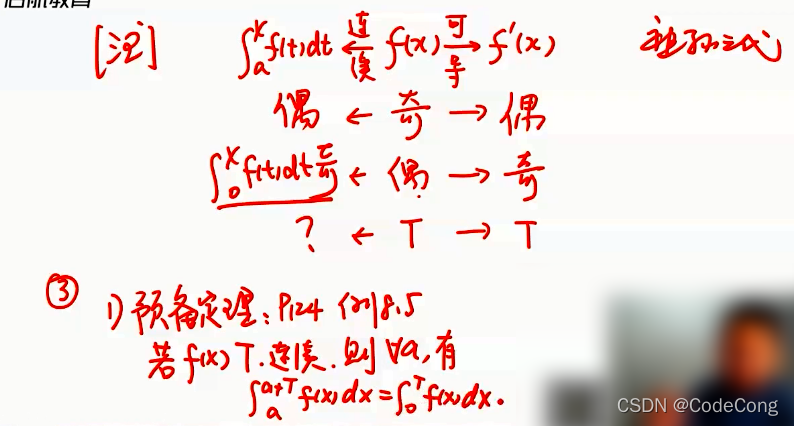 启航教育
[注] ∫ₐˣf(t)dt ←连续 f(x) 可导→ f′(x) 祖孙三代
偶 ← 奇 → 偶
∫₀ˣf(t)dt奇 ← 偶 → 奇
? ← T → T
③ 1) 预备定理: P124 例8.5
若f(x)T.连续.则∀a,有
∫ₐᵃ⁺ᵀf(x)dx=∫₀ᵀf(x)dx.
CSDN @CodeCong